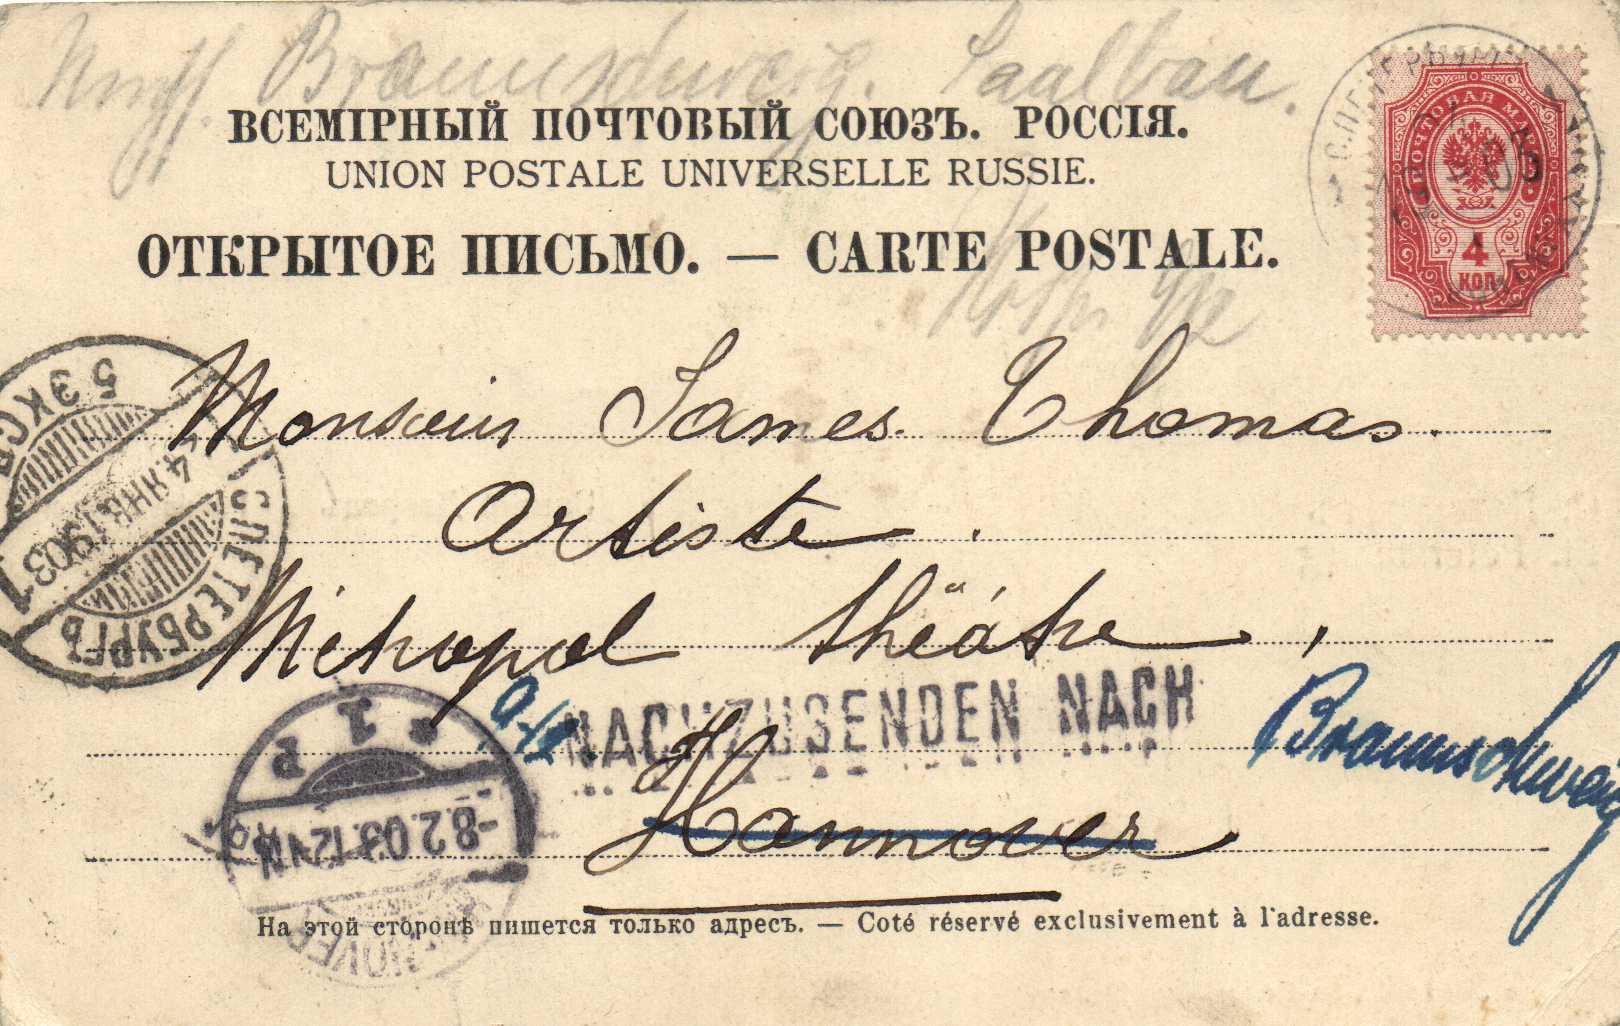 Brauns Saalbau.
ВСЕМІРНЫЙ ПОЧТОВЫЙ СОЮЗЪ. РОССІЯ.
UNION POSTALE UNIVERSELLE RUSSIE.
ОТКРЫТОЕ ПИСЬМО. — CARTE POSTALE.
ПОЧТОВАЯ МАРКА
4
КОП.
Monsieur James Thomas.
Artiste.
Métropol théâtre,
NACHZUSENDEN NACH
Braunschweig
Hannover
На этой сторонѣ пишется только адресъ. — Coté réservé exclusivement à l'adresse.
5 ЭКСП.
4 ЯНВ. 1903
1
С.ПЕТЕРБУРГЪ
* 1 P
-8.2.03.12-1N
HANNOVER